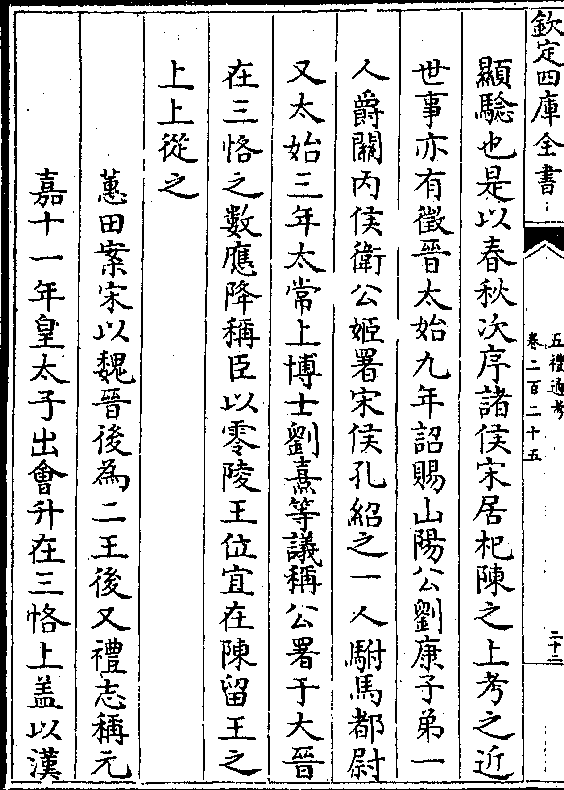 欽定四庫全書
五禮通考
卷二百二十五
二十二
顯騐也是以春秋次序諸侯宋居杞陳之上考之近
世事亦有徵晉太始九年詔賜山陽公劉康子弟一
人爵關内侯衛公姬署宋侯孔紹之一人駙馬都尉
又太始三年太常上博士劉熹等議稱公署于大晉
在三恪之數應降稱臣以零陵王位宜在陳留王之
上上從之
蕙田案宋以魏晉後為二王後又禮志稱元
嘉十一年皇太子出會升在三恪上盖以漢